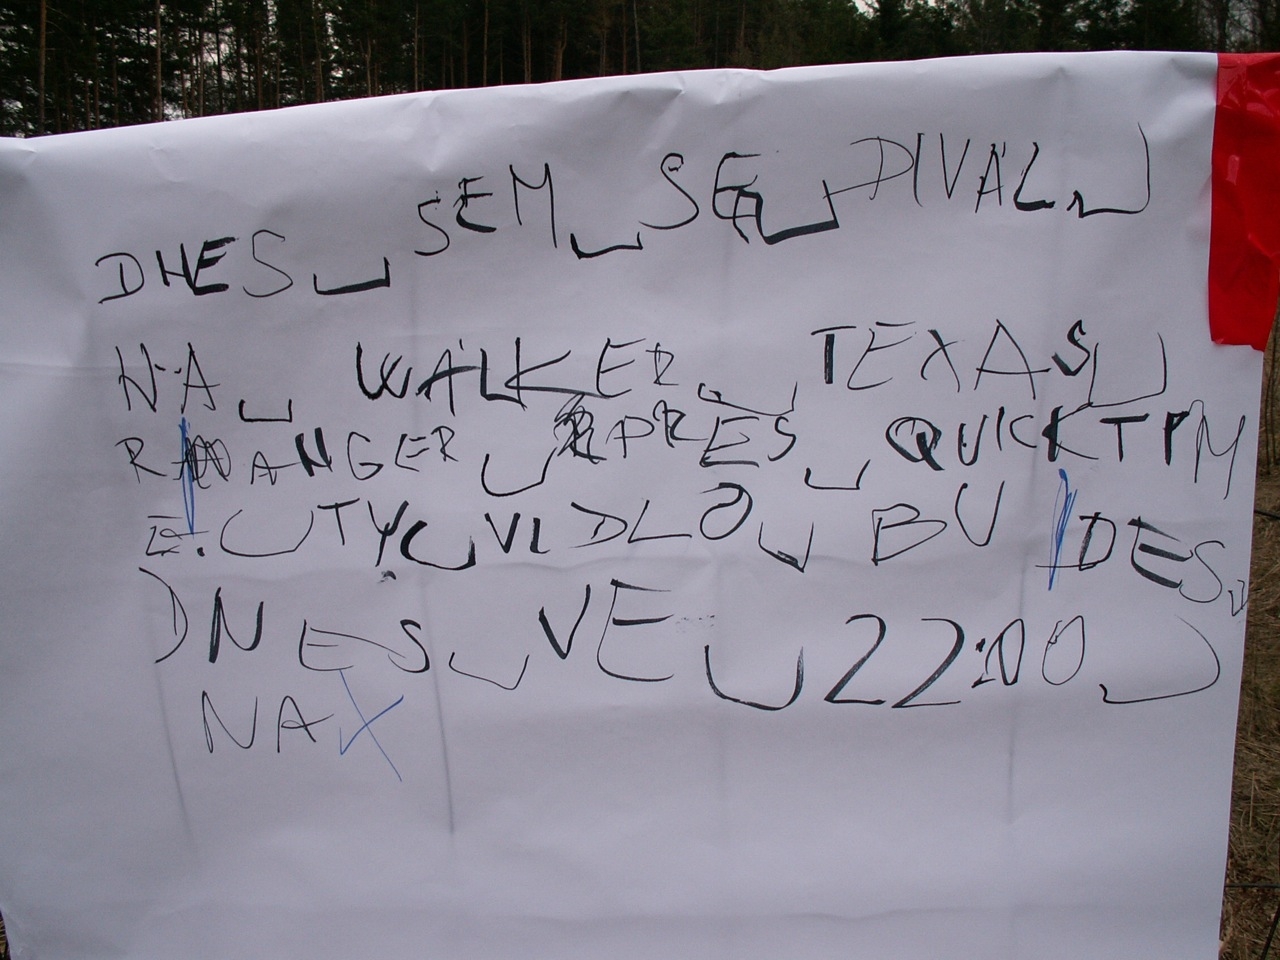 DNES␣SEM␣SE␣DIVAL␣
NA␣WALKER␣TEXAS␣
RANGER␣PRES␣QUICKTIM
E.␣TY␣VIDLO␣BUDES␣
DNES␣VE␣22:00␣
NA